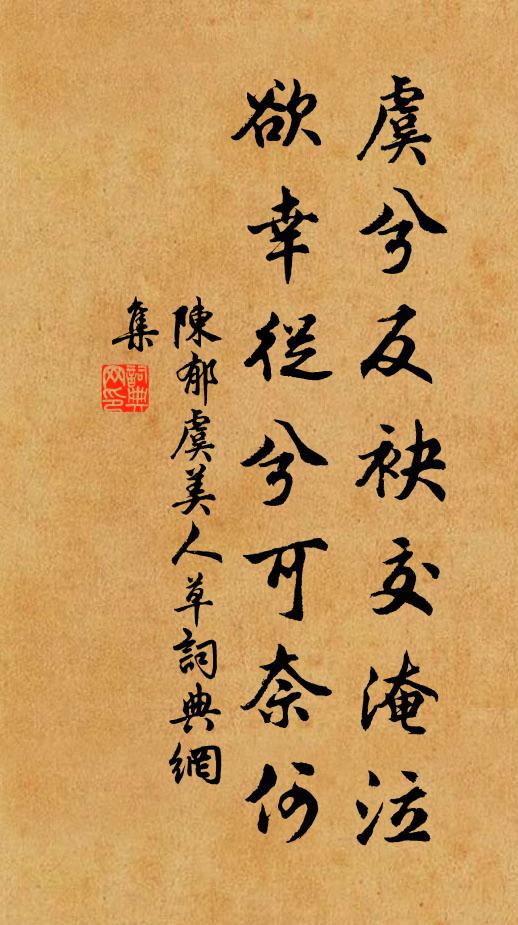 虞兮反袂交淹泣
欲幸從兮可奈何
陳郁虞美人草詞典網
集
詞典
网印